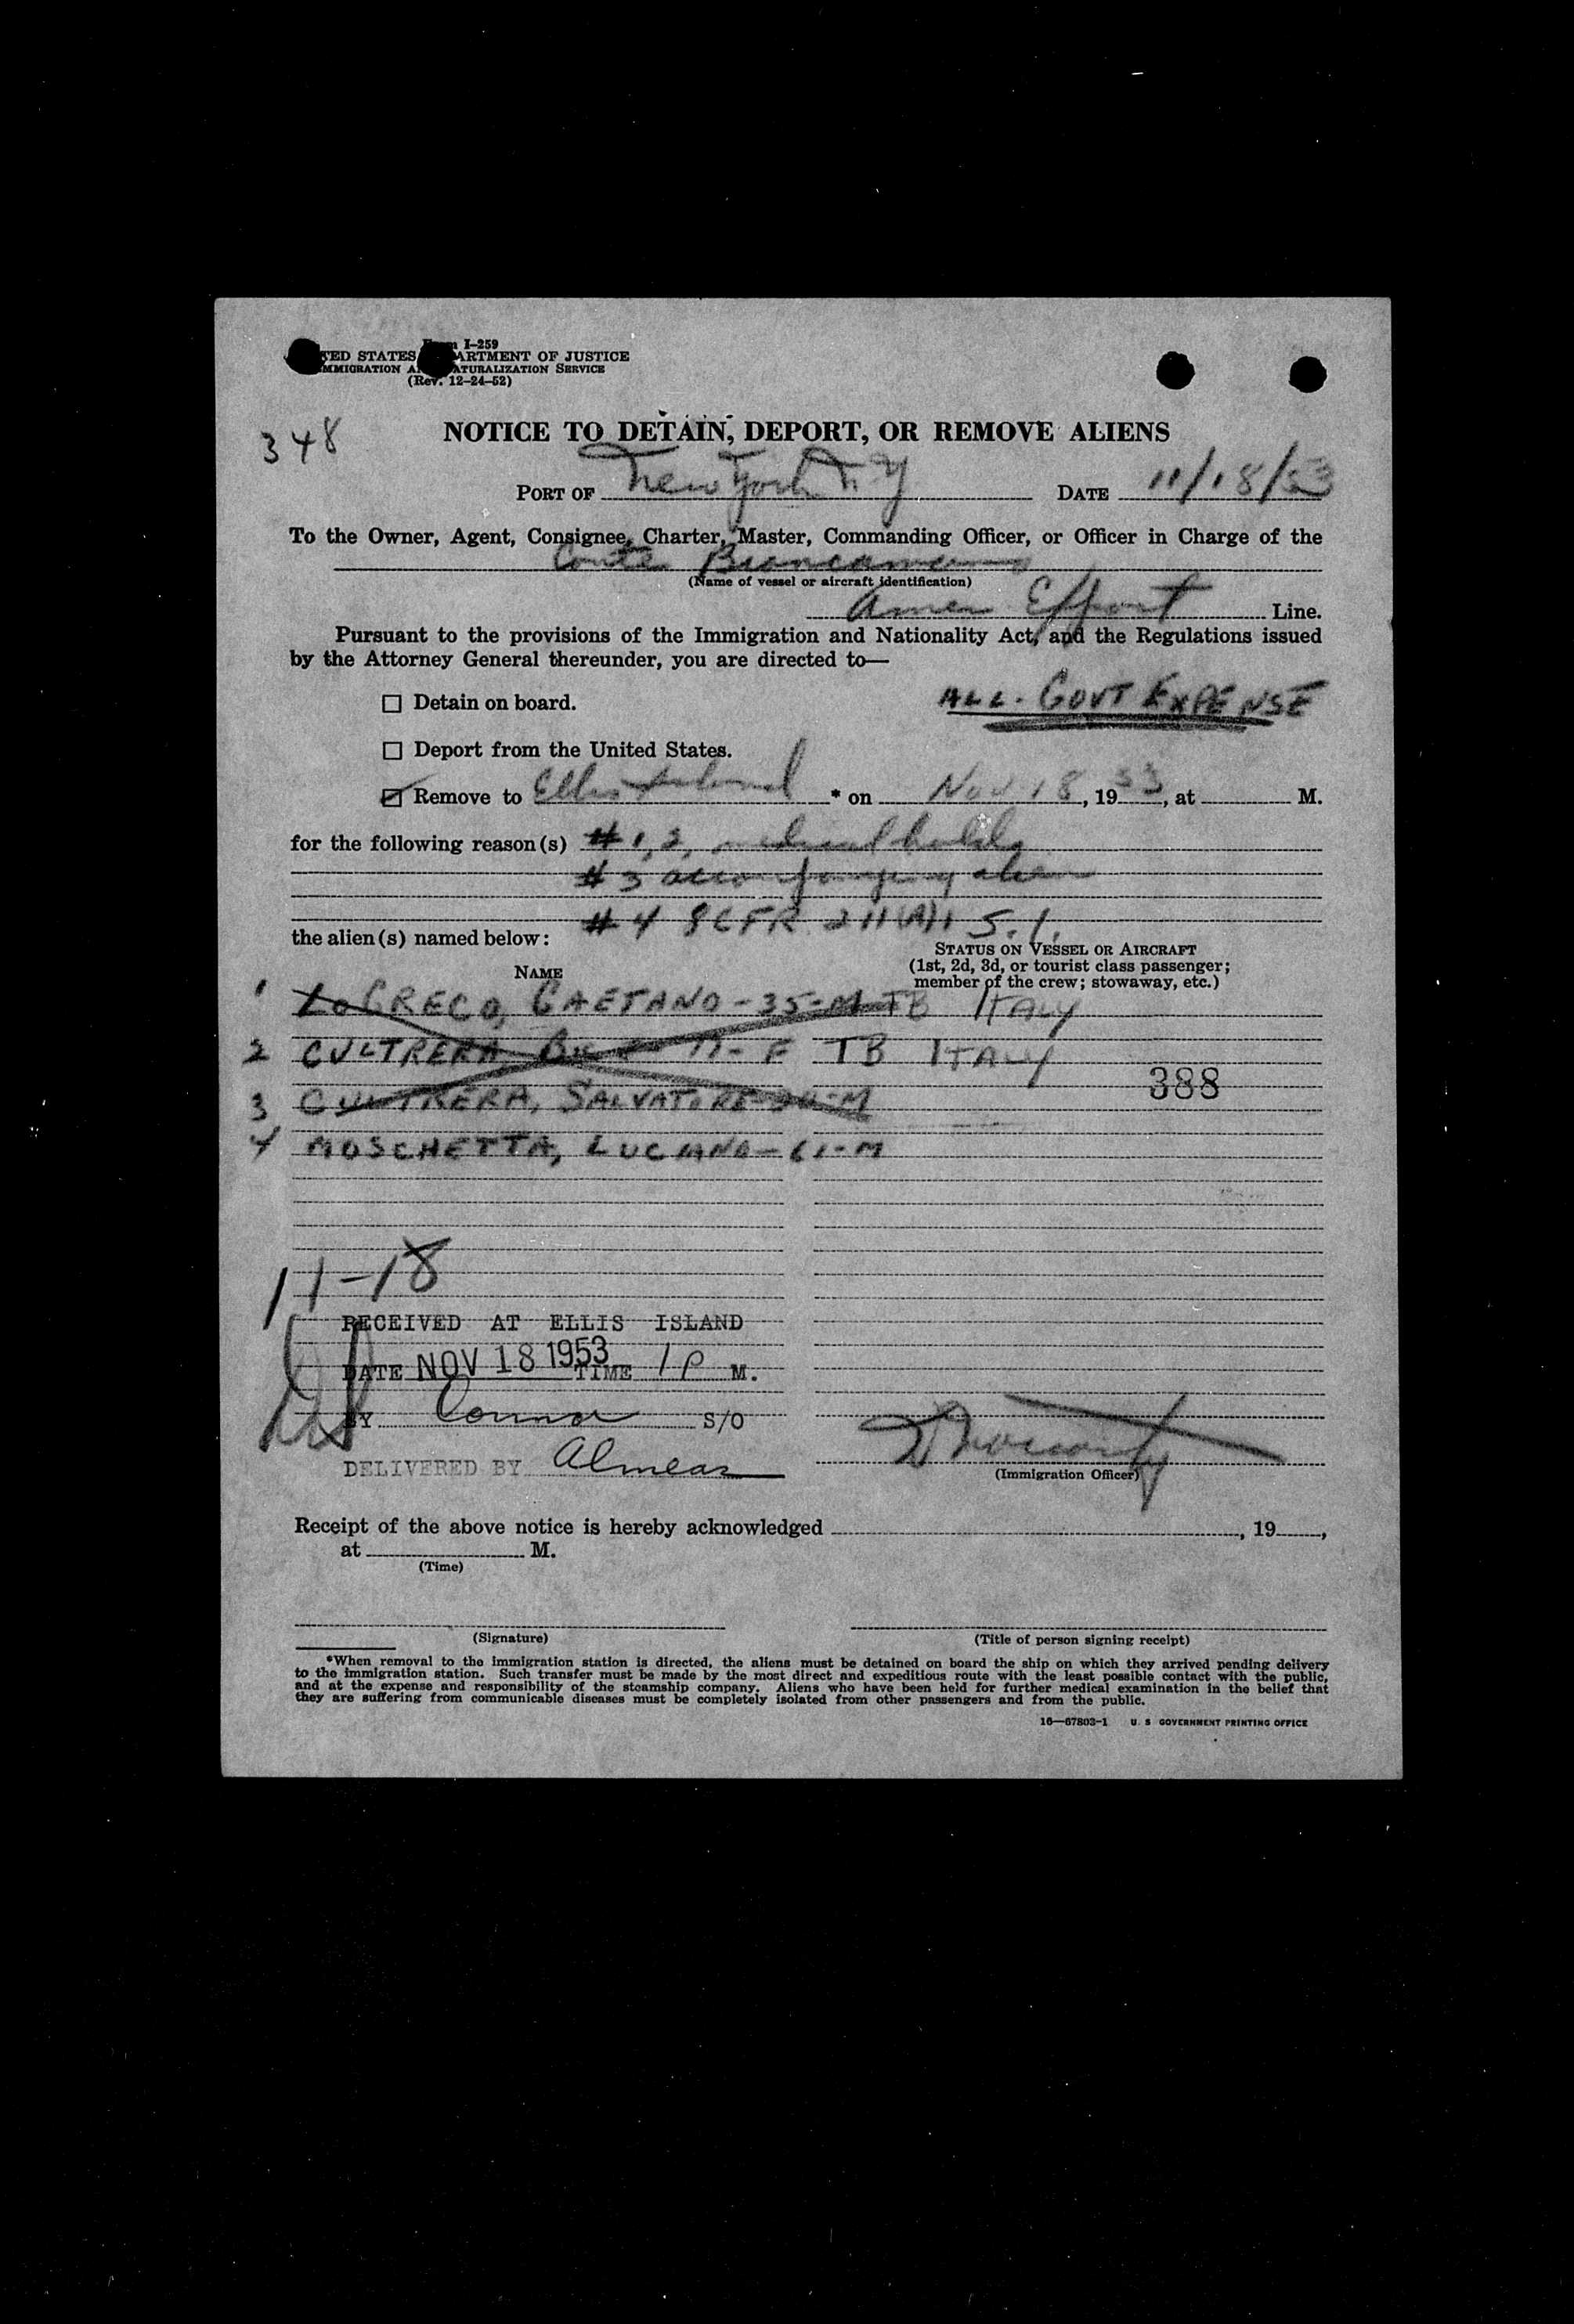 I-259
TED STATES ARTMENT OF JUSTICE
MMIGRATION A ATURALIZATION SERVICE
(Rev. 12-24-52)
348
NOTICE TO DETAIN, DEPORT, OR REMOVE ALIENS
PORT OF New York N.Y DATE 11/18/53
To the Owner, Agent, Consignee, Charter, Master, Commanding Officer, or Officer in Charge of the
Conte Biancamano
(Name of vessel or aircraft identification)
Amer Export Line.
Pursuant to the provisions of the Immigration and Nationality Act, and the Regulations issued
by the Attorney General thereunder, you are directed to—
☐ Detain on board.
ALL. GOVT EXPENSE
☐ Deport from the United States.
☑ Remove to Ellis Island * on Nov 18, 1953, at M.
for the following reason(s) # 1, 2, medical holds
# 3 accompanying alien
# 4 8 CFR 211(A)1 S.I.
the alien(s) named below:
NAME
STATUS ON VESSEL OR AIRCRAFT
(1st, 2d, 3d, or tourist class passenger;
member of the crew; stowaway, etc.)
1 LOGRECO, GAETANO - 35 - M TB ITALY
2 CULTRERA - F TB ITALY
388
3 CULTRERA, SALVATORE - M
4 MOSCHETTA, LUCIANO - 61 - M
11-18
RECEIVED AT ELLIS ISLAND
DATE NOV 18 1953 TIME 1 P M.
BY Connor S/O
DELIVERED BY
(Immigration Officer)
Receipt of the above notice is hereby acknowledged , 19 ,
at M.
(Time)
(Signature) (Title of person signing receipt)
*When removal to the immigration station is directed, the aliens must be detained on board the ship on which they arrived pending delivery
to the immigration station. Such transfer must be made by the most direct and expeditious route with the least possible contact with the public,
and at the expense and responsibility of the steamship company. Aliens who have been held for further medical examination in the belief that
they are suffering from communicable diseases must be completely isolated from other passengers and from the public.
16—67803-1 U. S GOVERNMENT PRINTING OFFICE